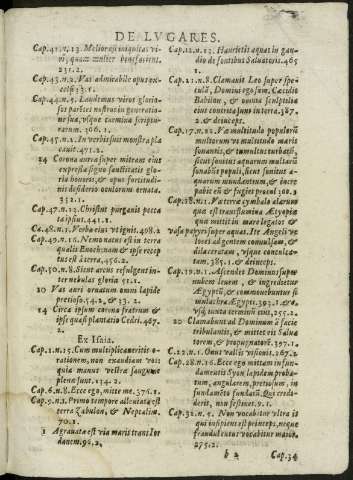 DE LVGARES.
Cap.41.n.13. Melior est iniquitas vi-
ri, quam mulier benefaciens.
231.2.
Cap.43.n.2. Vas admirabile opus ex-
celsi 33.1.
Cap.44.n.1. Laudemus viros glorio-
sos partes nostros in generatione
sua, vsque carmina scriptu-
rarum. 306.1.
Cap.45.n.2. In verbis suis monstra pla
cauit. 471.2.
14 Corona aurea super mitram eius
expressa signo sanctitatis gloria
honoris, & opus fortitudi-
nis desiderio oculorum ornata.
352.1.
Cap.47.n.13. Christus purgauit pecca
ta ipsius. 441.1.
Ca.48.n.1. Verba eius vt ignis. 498.2
Cap.49.n.16. Nemo natus est in terra
qualis Enoch: nam & ipse recep
tus est à terra, 456.2.
Cap.50.n.8. Sicut arcus refulgens in
ter nebulas gloria 51.2.
10 Vas auri ornatum omni lapide
pretioso. 54.2, & 33.2.
14 Circa ipsum corona fratrum &
ipse quasi plantatio Cedri. 467.
2.
Ex Isaia.
Cap.1.n.15. Cum multiplicaueritis o-
rationem, non exaudiam vos
quia manus vestra sanguine
plena sunt. 134.2.
Cap.6.n.8. Ecce ego, mitte me. 376.1.
Cap.9.n.1. Primo tempore alleuiata est
terra Zabulon, & Neptalim.
70.1.
1 Agrauata est via maris trans Ior
danem. 92.2.
Cap.12.n.13. Haurietis aquas in gau-
dio de fontibus Saluatoris. 465
1.
Cap.21.n.8. Clamauit Leo super spe-
culã, Domini ego sum. Cæcidit
Babilon, & omnia sculptilia
eius contrita sunt in terra. 387.
2. & deinceps.
Cap.17.n.12. Va multitudo populorũ
multorum vt multitudo maris
sonantis, & tumultus turbarũ,
sicut sonitus aquarum multarũ
sonabũt populi, sicut sonitus a-
quarum inundantum, & incre
pabit eũ & fugiet procul 300.1
Cap.18.n.1. Va terra cymbalo alarum
qua est trans flumina Ætyopiæ
qua mittit in mare legatos &
vasa papyri super aquas. Ite Angeli ve
loces ad gentem conuulsam, &
dilaceratam, vsque conculca-
tam. 385.1. & deinceps.
Cap.19.n.1. Ascendet Dominus super
nubem leuem, & ingredietur
Ægyptũ, & commouebuntur si
mulachra Ægypti. 393.1. & v-
sq; iuxta terminũ eius, 255.2.
20 Clamabunt ad Dominum à facie
tribulantis, & mittet eis Salua
torem, & propugnatorẽ. 397.1.
C.22.n.1. Onus vallis visionis. 267.2
Cap.28.n.16. Ecce ego mittam in fun-
damentis Syon lapidem proba-
tum, angularem, pretiosum, in
fundamẽto fundatũ. Qui credi-
derit, non festinet. 9.1.
Cap.32.n.5. Non vocabitur vltra is
qui insipiens est princeps, neque
fraudulentus vocabitur maior.
275.2.
b 2 Cap.34